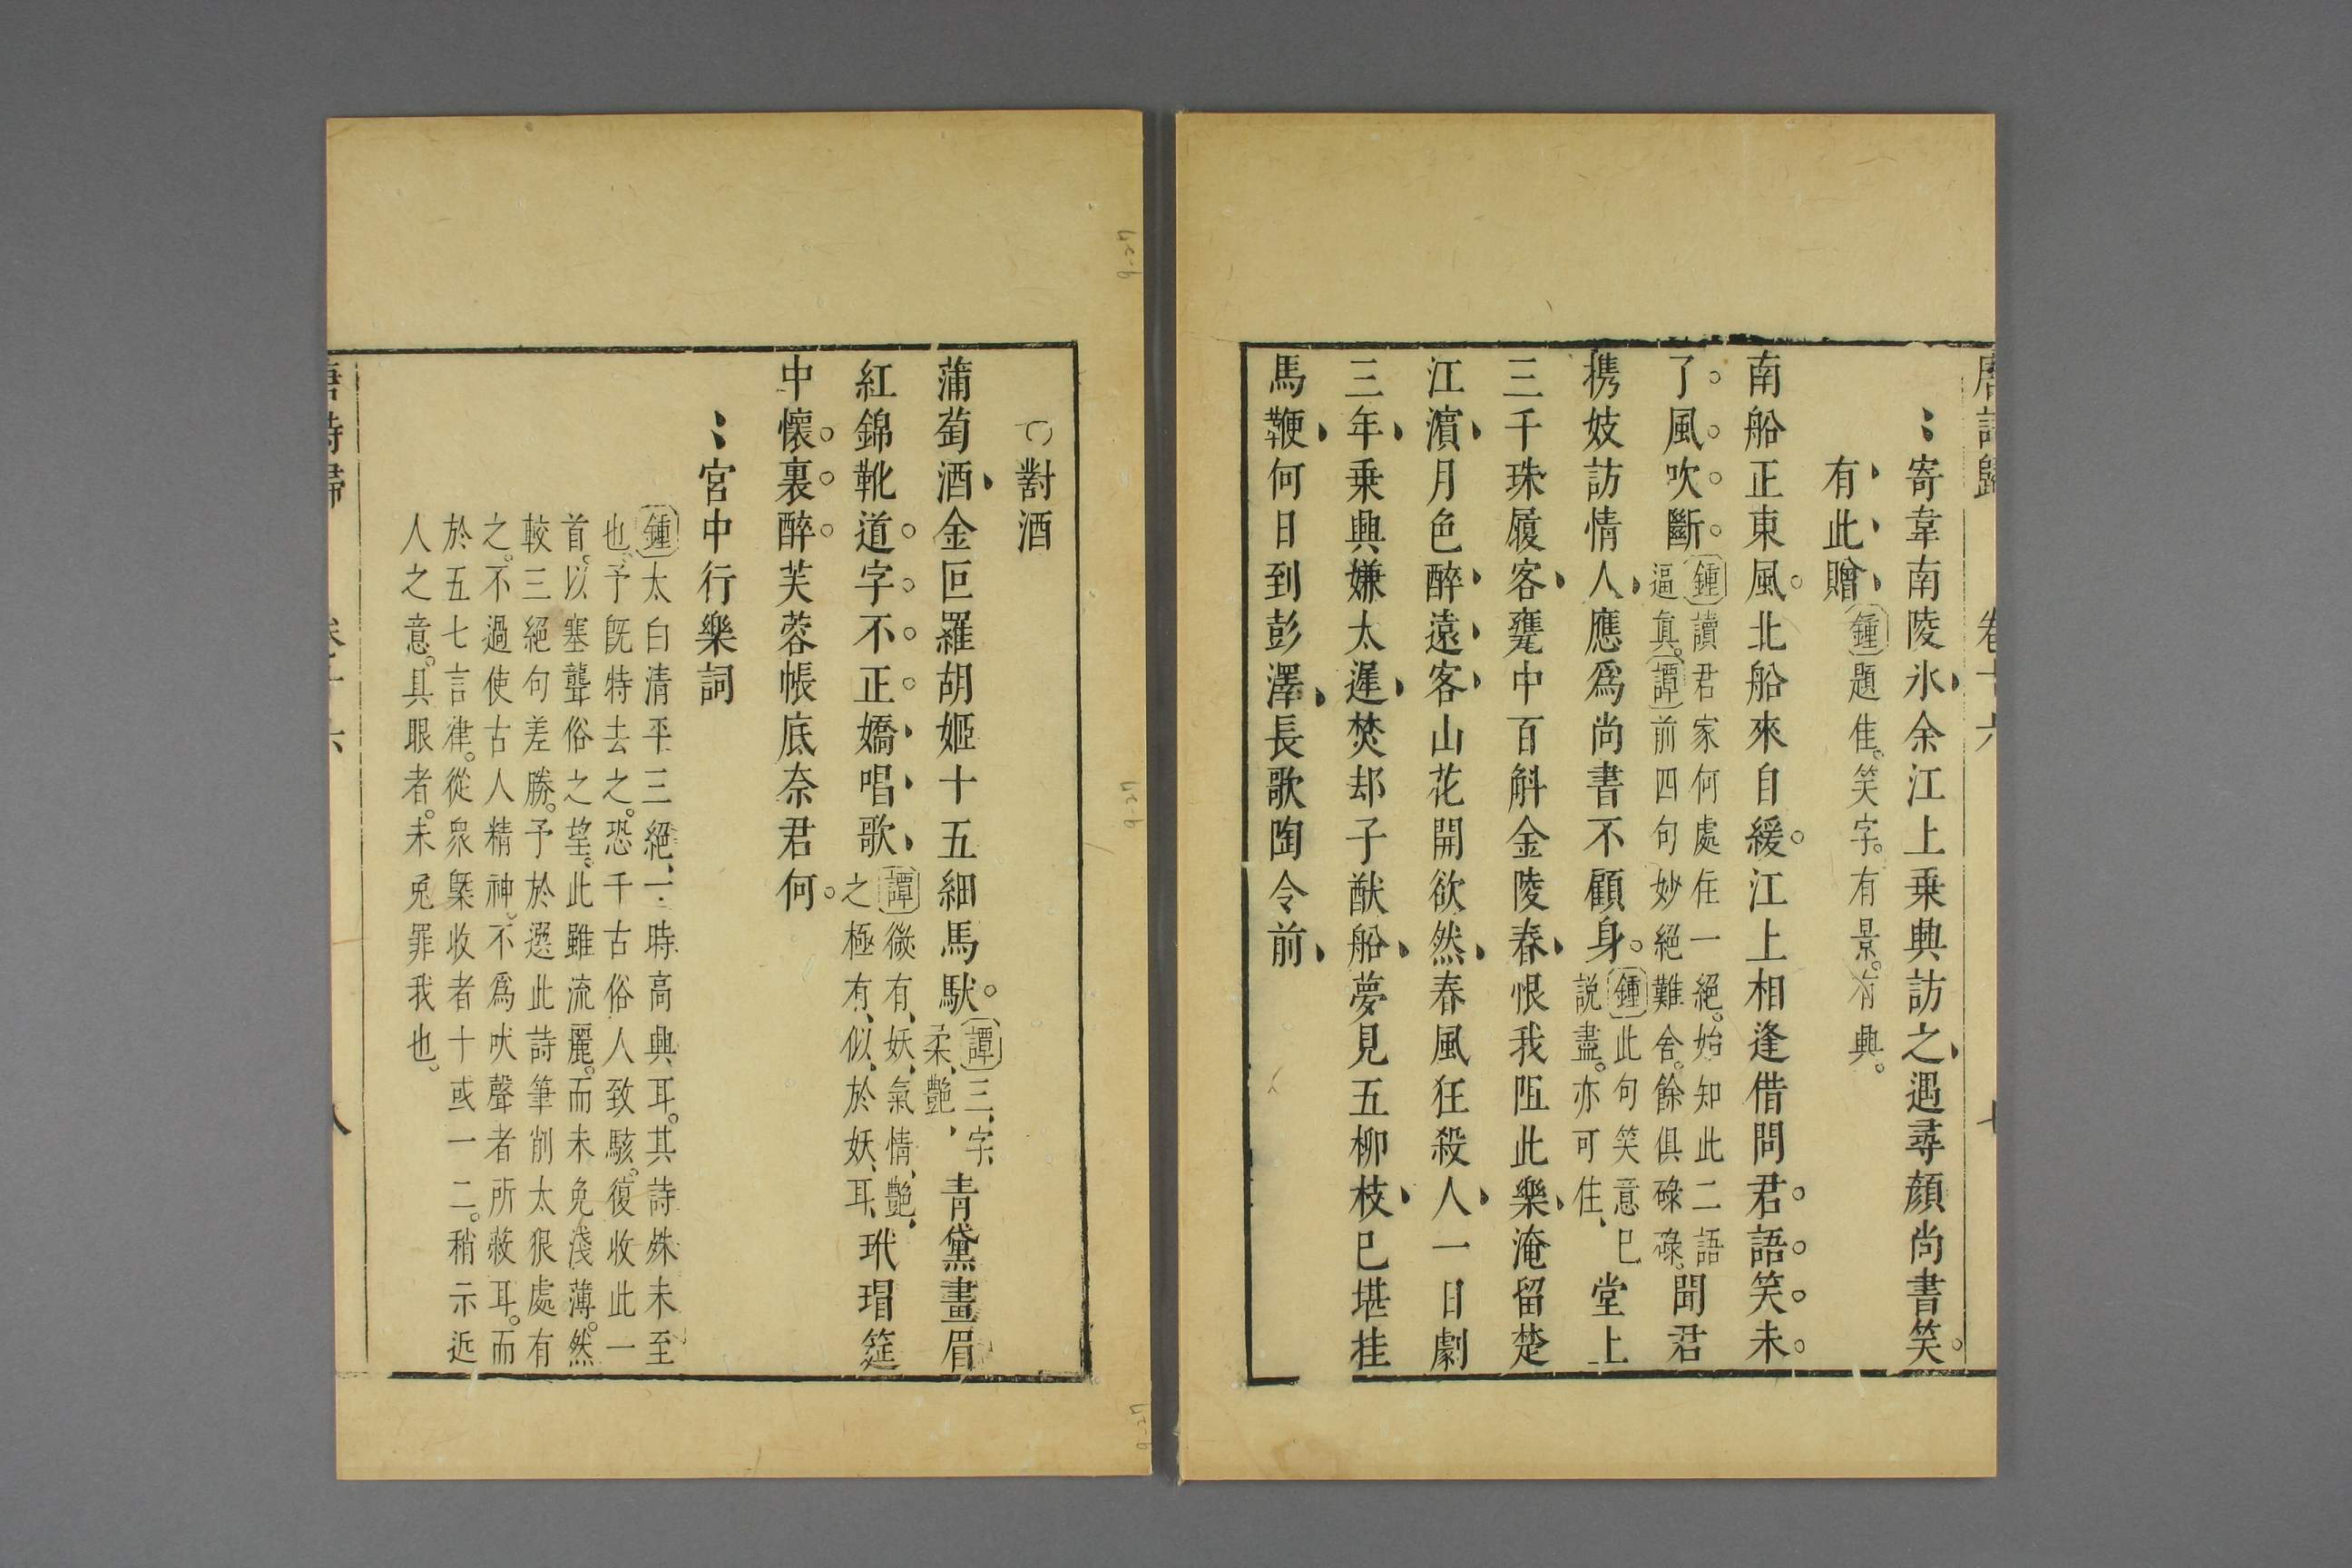 唐詩歸　卷十六　七
寄韋南陵氷余江上乗興訪之遇尋顔尚書笑
有此贈 鍾題佳笑字有景有興
南船正東風北船來自緩江上相逢借問君語笑未
了風吹斷 鍾讀君家何處住一絕始知此二語逼眞譚前四句妙絕難舍餘俱碌碌 聞君
携妓訪情人應爲尚書不顧身 鍾此句笑意巳說盡亦可住 堂上
三千珠履客甕中百斛金陵春恨我阻此樂淹留楚
江濵月色醉遠客山花開欲然春風狂殺人一日劇
三年乗興嫌太遲焚却子猷船夢見五柳枝巳堪挂
馬鞭何日到彭澤長歌陶令前
對酒
蒲萄酒金叵羅胡姬十五細馬馱 譚三字柔艶 青黛畫眉
紅錦靴道字不正嬌唱歌 譚微有妖氣情艶之極有似於妖耳 玳瑁筵
中懷裏醉芙蓉帳底奈君何
宮中行樂詞
鍾太白清平三絕一時高興耳其詩殊未至
也予旣特去之恐千古俗人致駭復收此一
首以塞聾俗之望此雖流麗而未免淺薄然
較三絕句差勝予於選此詩筆削太狠處有
之不過使古人精神不爲吠聲者所蔽耳而
於五七言律從衆槩收者十或一二稍示近
人之意具眼者未免罪我也
唐詩歸　卷十六　八